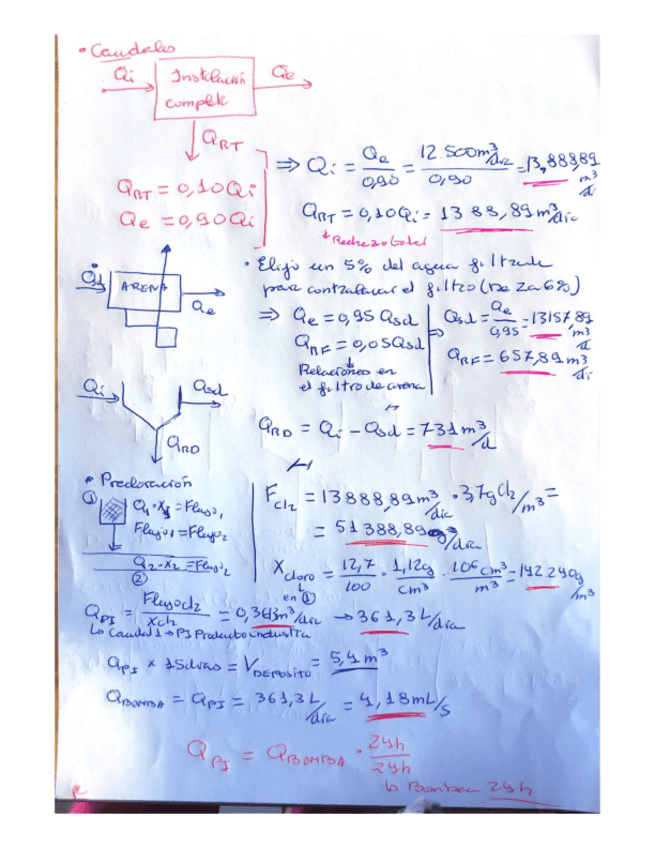 • Caudales
Qi
Instalación
complete
Qe
QRT
QRT = 0,10Qi
Qe = 0,90Qi
⇒ Qi = Qe/0,90 = 12.500m³/día/0,90 = 13,88889 m³/d
QRT = 0,10Qi = 1388,89 m³/día
↓ Rechazo total
• Elijo un 5% del agua filtrada
para contralavar el filtro (De 2 a 6%)
Qsd
ARENA
Qe
⇒ Qe = 0,95 Qsd
QRF = 0,05Qsd
Relaciones en
el filtro de arena
Qsd = Qe/0,95 = 13157,89 m³/d
QRF = 657,89 m³/dí
Qi
Qsd
QRD
QRD = Qi − Qsd = 731 m³/d
• Precloración
①
Q1·X1 = Flujo1
Flujo1 = Flujo2
Q2·X2 = Flujo2
②
FCl2 = 13888,89 m³/día · 3,7gCl2/m³ =
= 51388,89 g/día
Xcloro = 12,7/100 · 1,12g/cm³ · 10⁶cm³/m³ = 142.240g/m³
en ①
QPI = FlujoCl2/XCl2 = 0,3613m³/día → 361,3 L/día
↳ Caudal 1 → PI Producto industria
QPI × 15días = VDEPOSITO = 5,4 m³
QBOMBA = QPI = 361,3 L/día = 4,18mL/s
QPI = QBOMBA · 24h/24h
↳ Bombea 24h